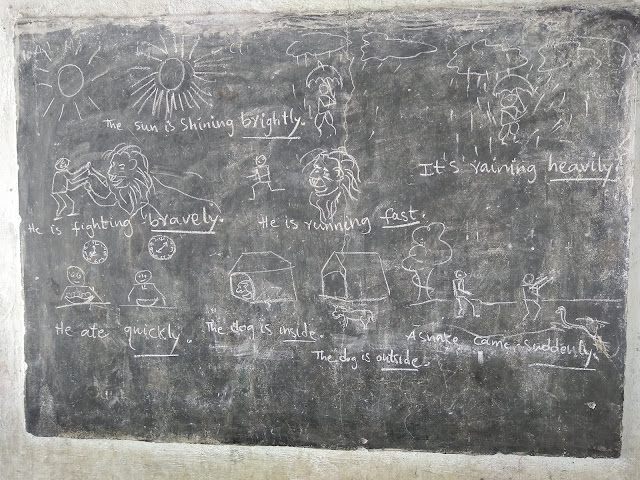 The sun is shining brightly.
It's raining heavily.
He is fighting bravely.
He is running fast.
He ate quickly.
The dog is inside.
The dog is outside.
A snake came suddenly.